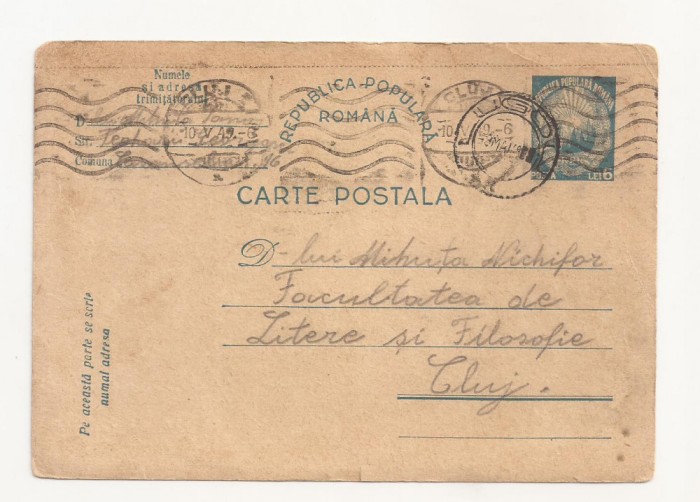 Numele
și adresa
trimițătorului
D
Str.
Comuna
REPUBLICA POPULARĂ
ROMÂNĂ
CLUJ
10 V 49.-6
CARTE POSTALA
REPUBLICA POPULARĂ ROMÂNĂ
LEI 6
D-lui Mihuța Nichifor
Facultatea de
Litere și Filosofie
Cluj.
Pe această parte se scrie
numai adresa